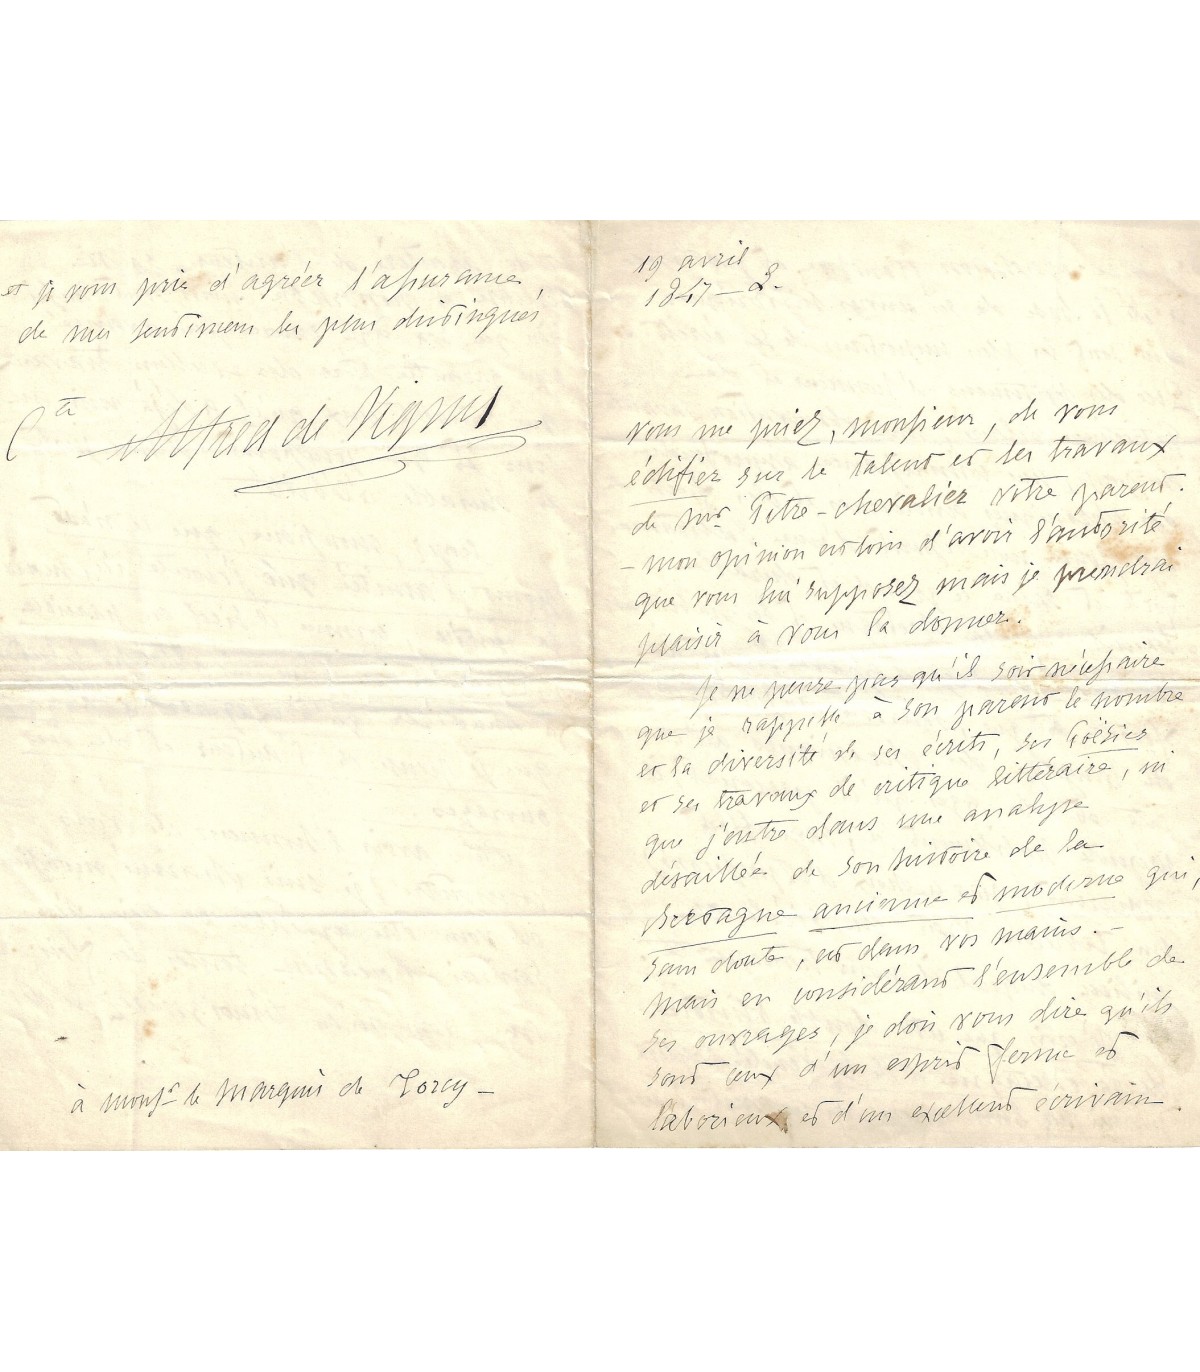 19 avril
1847 –
Vous me priez, monsieur, de vous
édifier sur le talent et les travaux
de Mr Pitre-chevalier votre parent.
– mon opinion est loin d'avoir l'autorité
que vous lui supposez mais je prendrai
plaisir à vous la donner.
Je ne pense pas qu'il soit nécessaire
que je rappelle à son parent le nombre
et la diversité de ses écrits, ses Poësies
et ses travaux de critique littéraire, ni
que j'entre dans une analyse
détaillée de son histoire de la
Bretagne ancienne et moderne qui,
sans doute, est dans vos mains. –
Mais en considérant l'ensemble de
ses ouvrages, je dois vous dire qu'ils
sont ceux d'un esprit ferme et
laborieux et d'un excellent écrivain.
et je vous prie d'agréer l'assurance
de mes sentimens les plus distingués
Cte Alfred de Vigny
à Monsr le Marquis de Torcy –